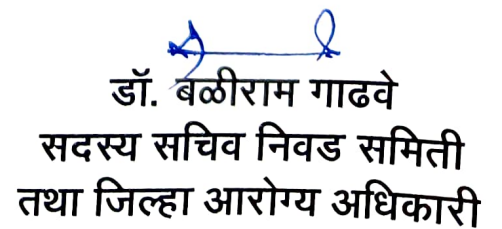 डॉ. बळीराम गाढवे
सदस्य सचिव निवड समिती
तथा जिल्हा आरोग्य अधिकारी